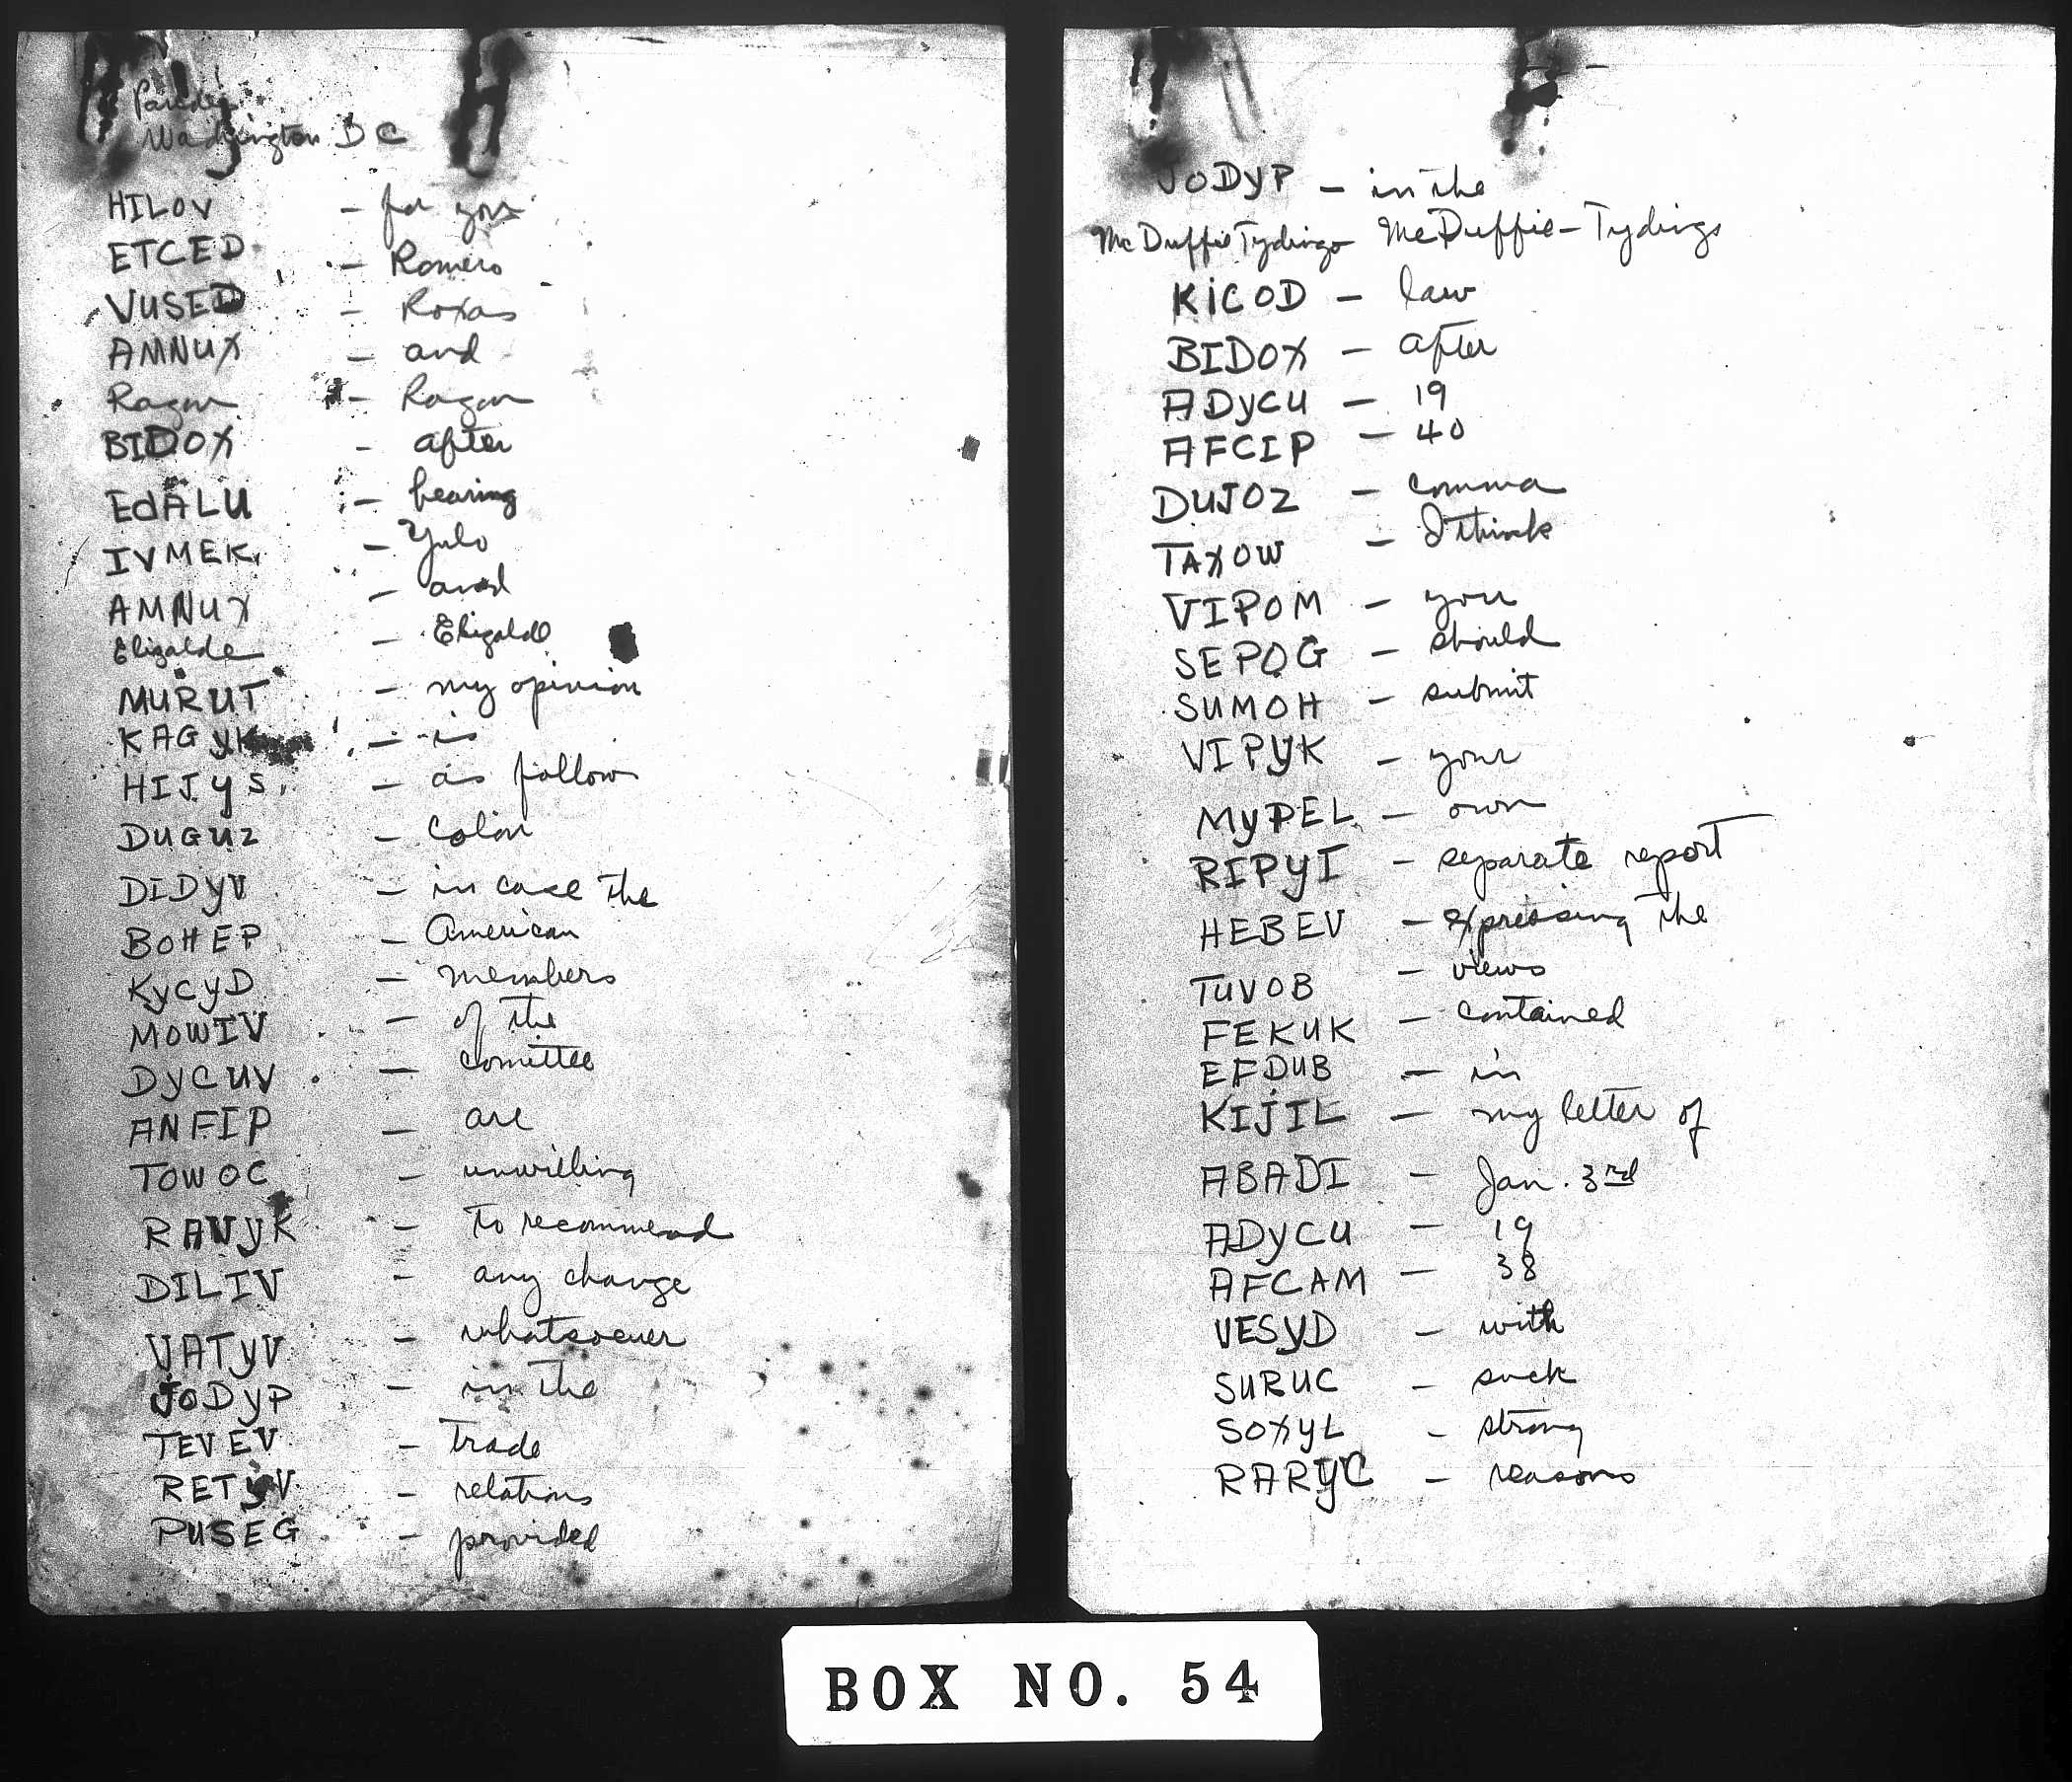 Paredes
Washington D C
HILOV - for you
ETCED - Romero
VUSED - Roxas
AMNUX - and
Ragon - Ragon
BIDOX - after
EdALU - hearing
IVMEK - Yulo
AMNUX - and
Elizalde - Elizalde
MURUT - my opinion
KAGYK - is
HIJYS - as follow
DUGUZ - colon
DIDYV - in case the
BOHEP - American
KYCYD - members
MOWIV - of the
DYCUV - comittee
ANFIP - are
TOWOC - unwilling
RAVYK - to recommend
DILIV - any change
VATYV - whatsoever
JODYP - in the
TEVEV - trade
RETYV - relations
PUSEG - provided
- 2 -
JODYP - in the
McDuffieTydings McDuffie-Tydings
KICOD - law
BIDOX - after
ADYCU - 19
AFCIP - 40
DUJOZ - comma
TAXOW - I think
VIPOM - you
SEPOG - should
SUMOH - submit
VIPYK - your
MYPEL - own
RIPYI - separate report
HEBEV - expressing the
TUVOB - views
FEKUK - contained
EFDUB - in
KIJIL - my letter of
ABADI - Jan. 3rd
ADYCU - 19
AFCAM - 38
VESYD - with
SURUC - such
SOXYL - strong
RARYC - reasons
BOX NO. 54